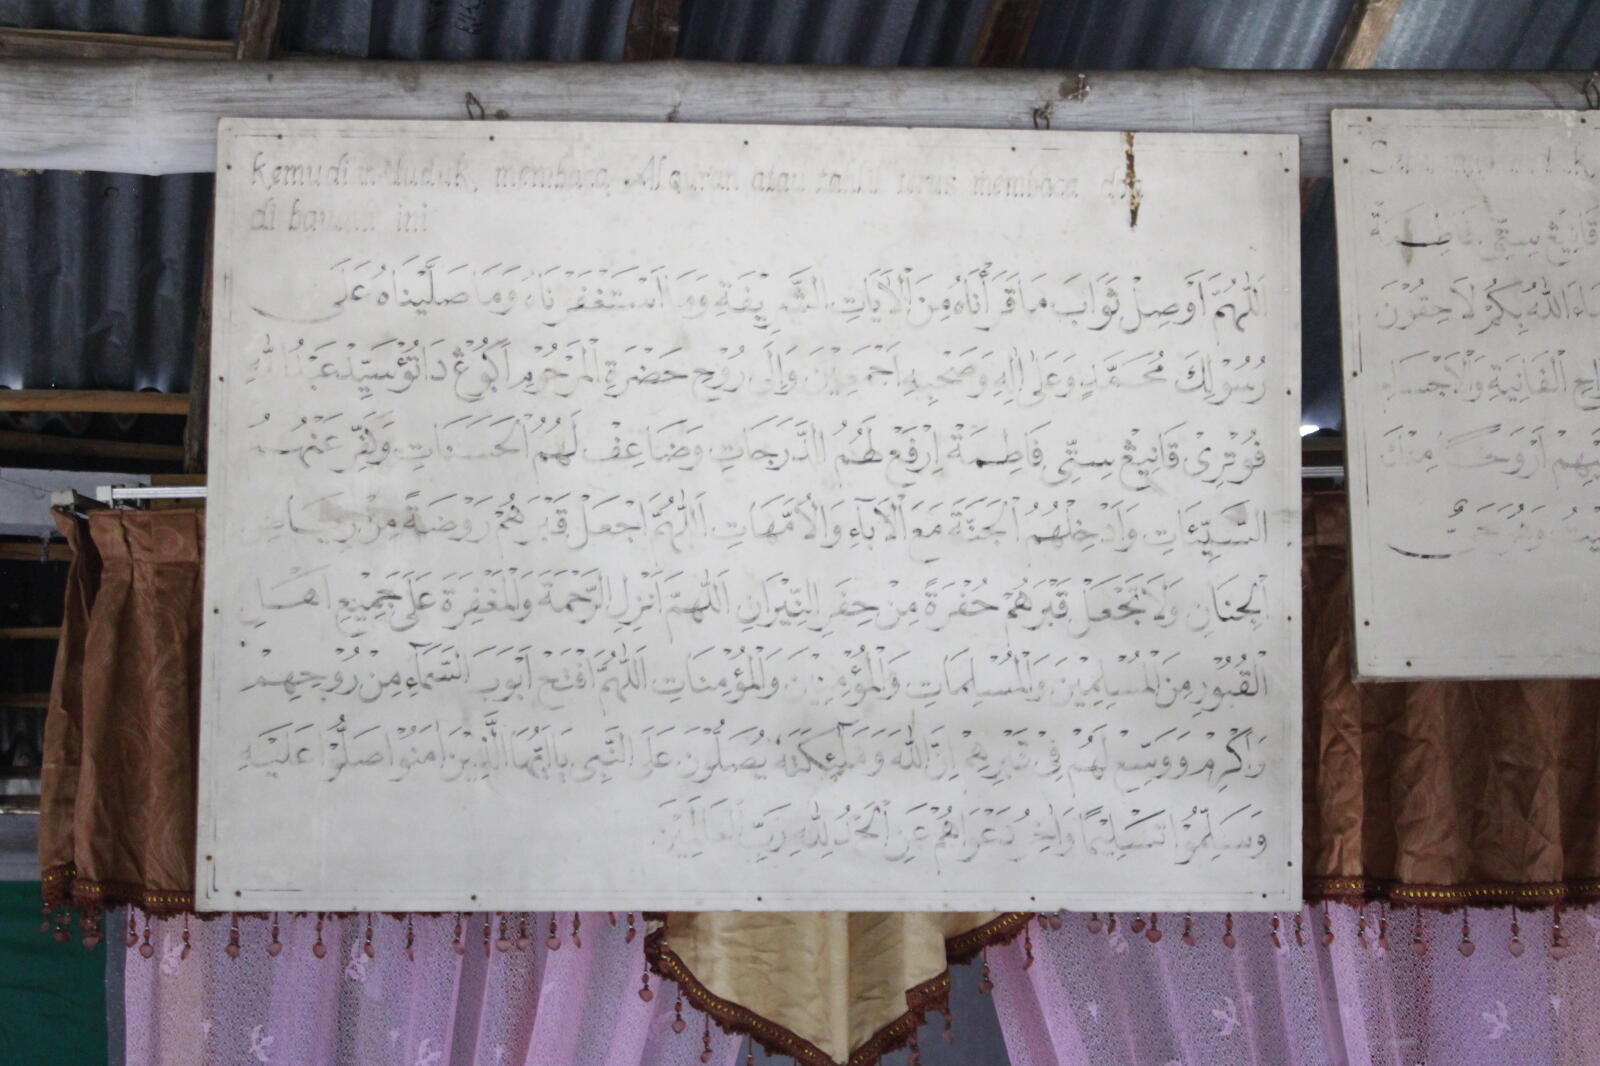 kemudian duduk, membaca AlQuran atau tahlil terus membaca doa
di bawah ini
اَللّٰهُمَّ اَوْصِلْ ثَوَابَ مَا قَرَأْنَاهُ مِنَ الْاٰيَاتِ الشَّرِيْفَةِ وَمَا اسْتَغْفَرْنَاهُ وَمَا صَلَّيْنَاهُ عَلَى
رَسُوْلِكَ مُحَمَّدٍ وَعَلَى اٰلِهِ وَصَحْبِهِ اَجْمَعِيْنَ وَاِلَى رُوْحِ حَضْرَةِ الْمَرْحُوْمِ اَڬُوْعْ دَاتُؤْ سَيِّدْ عَبْدُ اللّٰهِ
فُوْتِرِىْ قَانِيْعْ سِتِّى فَاطِمَةْ اِرْفَعْ لَهُمُ الدَّرَجَاتِ وَضَاعِفْ لَهُمُ الْحَسَنَاتِ وَكَفِّرْ عَنْهُمُ
السَّيِّئَاتِ وَاَدْخِلْهُمُ الْجَنَّةَ مَعَ الْاٰبَآءِ وَالْاُمَّهَاتِ اَللّٰهُمَّ اجْعَلْ قَبْرَهُمْ رَوْضَةً مِنْ رِيَاضِ
الْجِنَانِ وَلَا تَجْعَلْ قَبْرَهُمْ حُفْرَةً مِنْ حِفَرِ النِّيْرَانِ اَللّٰهُمَّ اَنْزِلِ الرَّحْمَةَ وَالْمَغْفِرَةَ عَلَى جَمِيْعِ اَهْلِ
الْقُبُوْرِ مِنَ الْمُسْلِمِيْنَ وَالْمُسْلِمَاتِ وَالْمُؤْمِنِيْنَ وَالْمُؤْمِنَاتِ اَللّٰهُمَّ افْتَحْ اَبْوَبَ السَّمَآءِ مِنْ رُوْحِهِمْ
وَاَكْرِمْ وَوَسِّعْ لَهُمْ فِيْ قَبْرِهِمْ اِنَّ اللّٰهَ وَمَلٰٓئِكَتَهُ يُصَلُّوْنَ عَلَى النَّبِى يَااَيُّهَا الَّذِيْنَ اٰمَنُوْا صَلُّوْا عَلَيْهِ
وَسَلِّمُوْا تَسْلِيْمًا وَاٰخِرُ دَعْوَاهُمْ عَنِ الْحَمْدُ لِلّٰهِ رَبِّ الْعَالَمِيْنَ
فَاطِمَةْ
شَاءَ اللّٰهُ بِكُمْ لَا حِقُوْنَ
الْفَانِيَةِ وَالْاَجْسَادِ
مِنْكَ